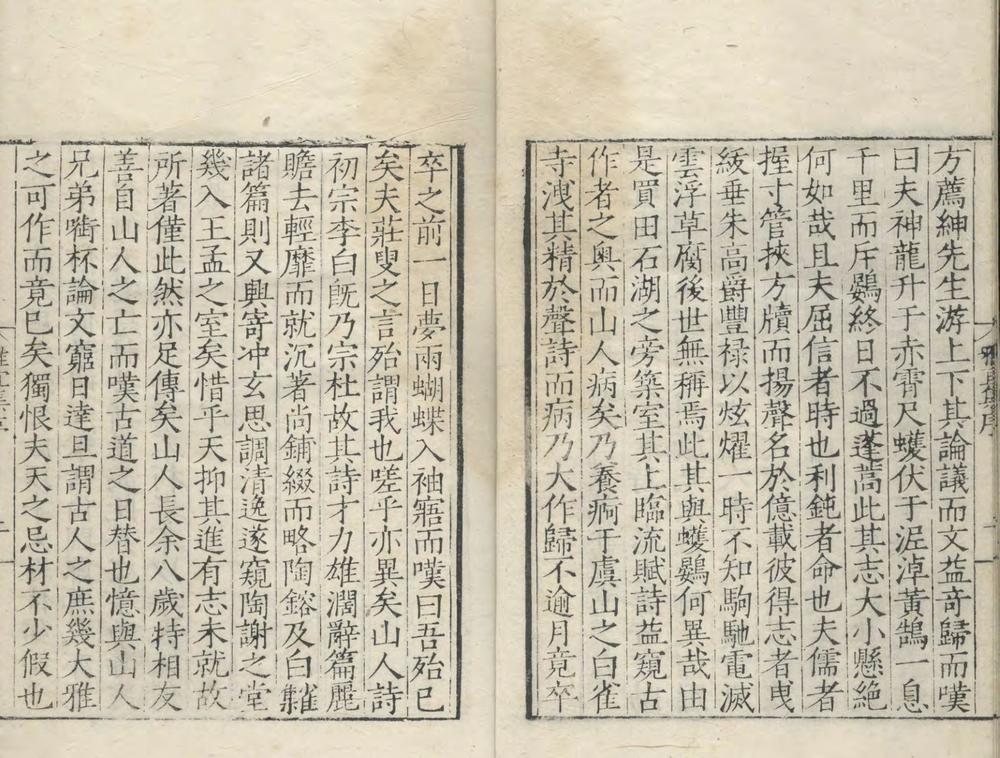 方薦紳先生游上下其論議而文益奇歸而嘆
曰夫神龍升于赤霄尺蠖伏于泥淖黃鵠一息
千里而斥鷃終日不過蓬蒿此其志大小懸絕
何如哉且夫屈信者時也利鈍者命也夫儒者
握寸管挾方牘而揚聲名於億載彼得志者曳
綬垂朱高爵豐祿以炫燿一時不知駒馳電滅
雲浮草腐後世無稱焉此其與蠖鷃何異哉由
是買田石湖之旁築室其上臨流賦詩益窺古
作者之奧而山人病矣乃養痾于虞山之白雀
寺洩其精於聲詩而病乃大作歸不逾月竟卒
卒之前一日夢兩蝴蝶入袖寤而嘆曰吾殆已
矣夫莊叟之言殆謂我也嗟乎亦異矣山人詩
初宗李白旣乃宗杜故其詩才力雄濶辭篇麗
贍去輕靡而就沉著尚鋪綴而略陶鎔及白雀
諸篇則又興寄冲玄思調清逸遂窺陶謝之堂
幾入王孟之室矣惜乎天抑其進有志未就故
所著僅此然亦足傳矣山人長余八歲特相友
善自山人之亡而嘆古道之日替也憶與山人
兄弟啣杯論文窮日達旦謂古人之庶幾大雅
之可作而竟已矣獨恨夫天之忌材不少假也